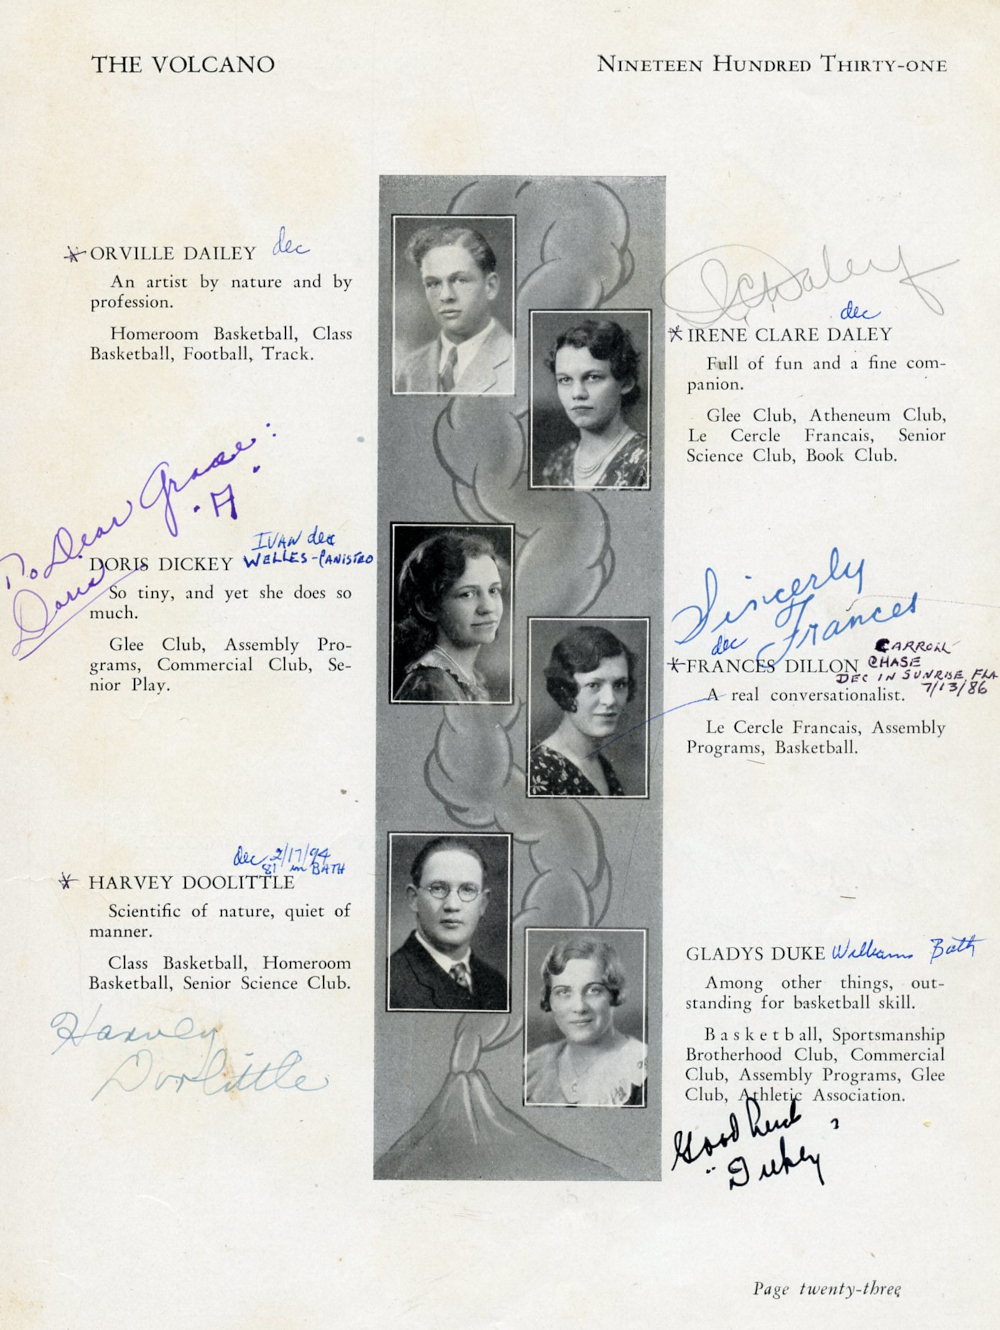 THE VOLCANO
NINETEEN HUNDRED THIRTY-ONE
ORVILLE DAILEY dec
An artist by nature and by
profession.
Homeroom Basketball, Class
Basketball, Football, Track.
To Dear Grace:
Doris
IVAN dec
DORIS DICKEY WELLES-PANISTRO
So tiny, and yet she does so
much.
Glee Club, Assembly Pro-
grams, Commercial Club, Se-
nior Play.
dec 2/17/94
81 in BATH
HARVEY DOOLITTLE
Scientific of nature, quiet of
manner.
Class Basketball, Homeroom
Basketball, Senior Science Club.
Harvey
Doolittle
I C Daley
dec
IRENE CLARE DALEY
Full of fun and a fine com-
panion.
Glee Club, Atheneum Club,
Le Cercle Francais, Senior
Science Club, Book Club.
Sincerly
Frances
dec
CARROLL
FRANCES DILLON CHASE
DEC IN SUNRISE FLA
7/13/86
A real conversationalist.
Le Cercle Francais, Assembly
Programs, Basketball.
GLADYS DUKE Williams Bath
Among other things, out-
standing for basketball skill.
Basketball, Sportsmanship
Brotherhood Club, Commercial
Club, Assembly Programs, Glee
Club, Athletic Association.
Good Luck
Page twenty-three